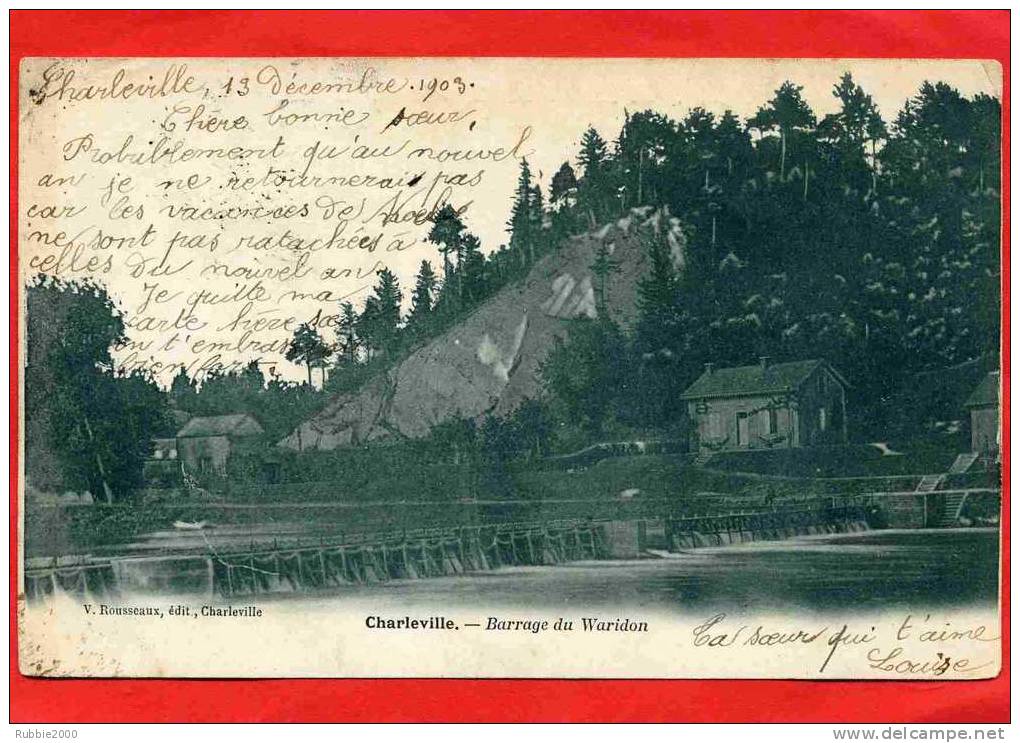 Charleville, 13 Décembre. 1903.
Chère bonne sœur,
Probiblement qu'au nouvel
an je ne retournerais pas
car les vacances de Noël
ne sont pas ratachées à
celles du nouvel an
Je quitte ma
carte chère
en t'embras
bien fort
V. Rousseaux, édit., Charleville
Charleville. — Barrage du Waridon
Ta sœur qui t'aime
Louise
Rubbie2000
www.delcampe.net